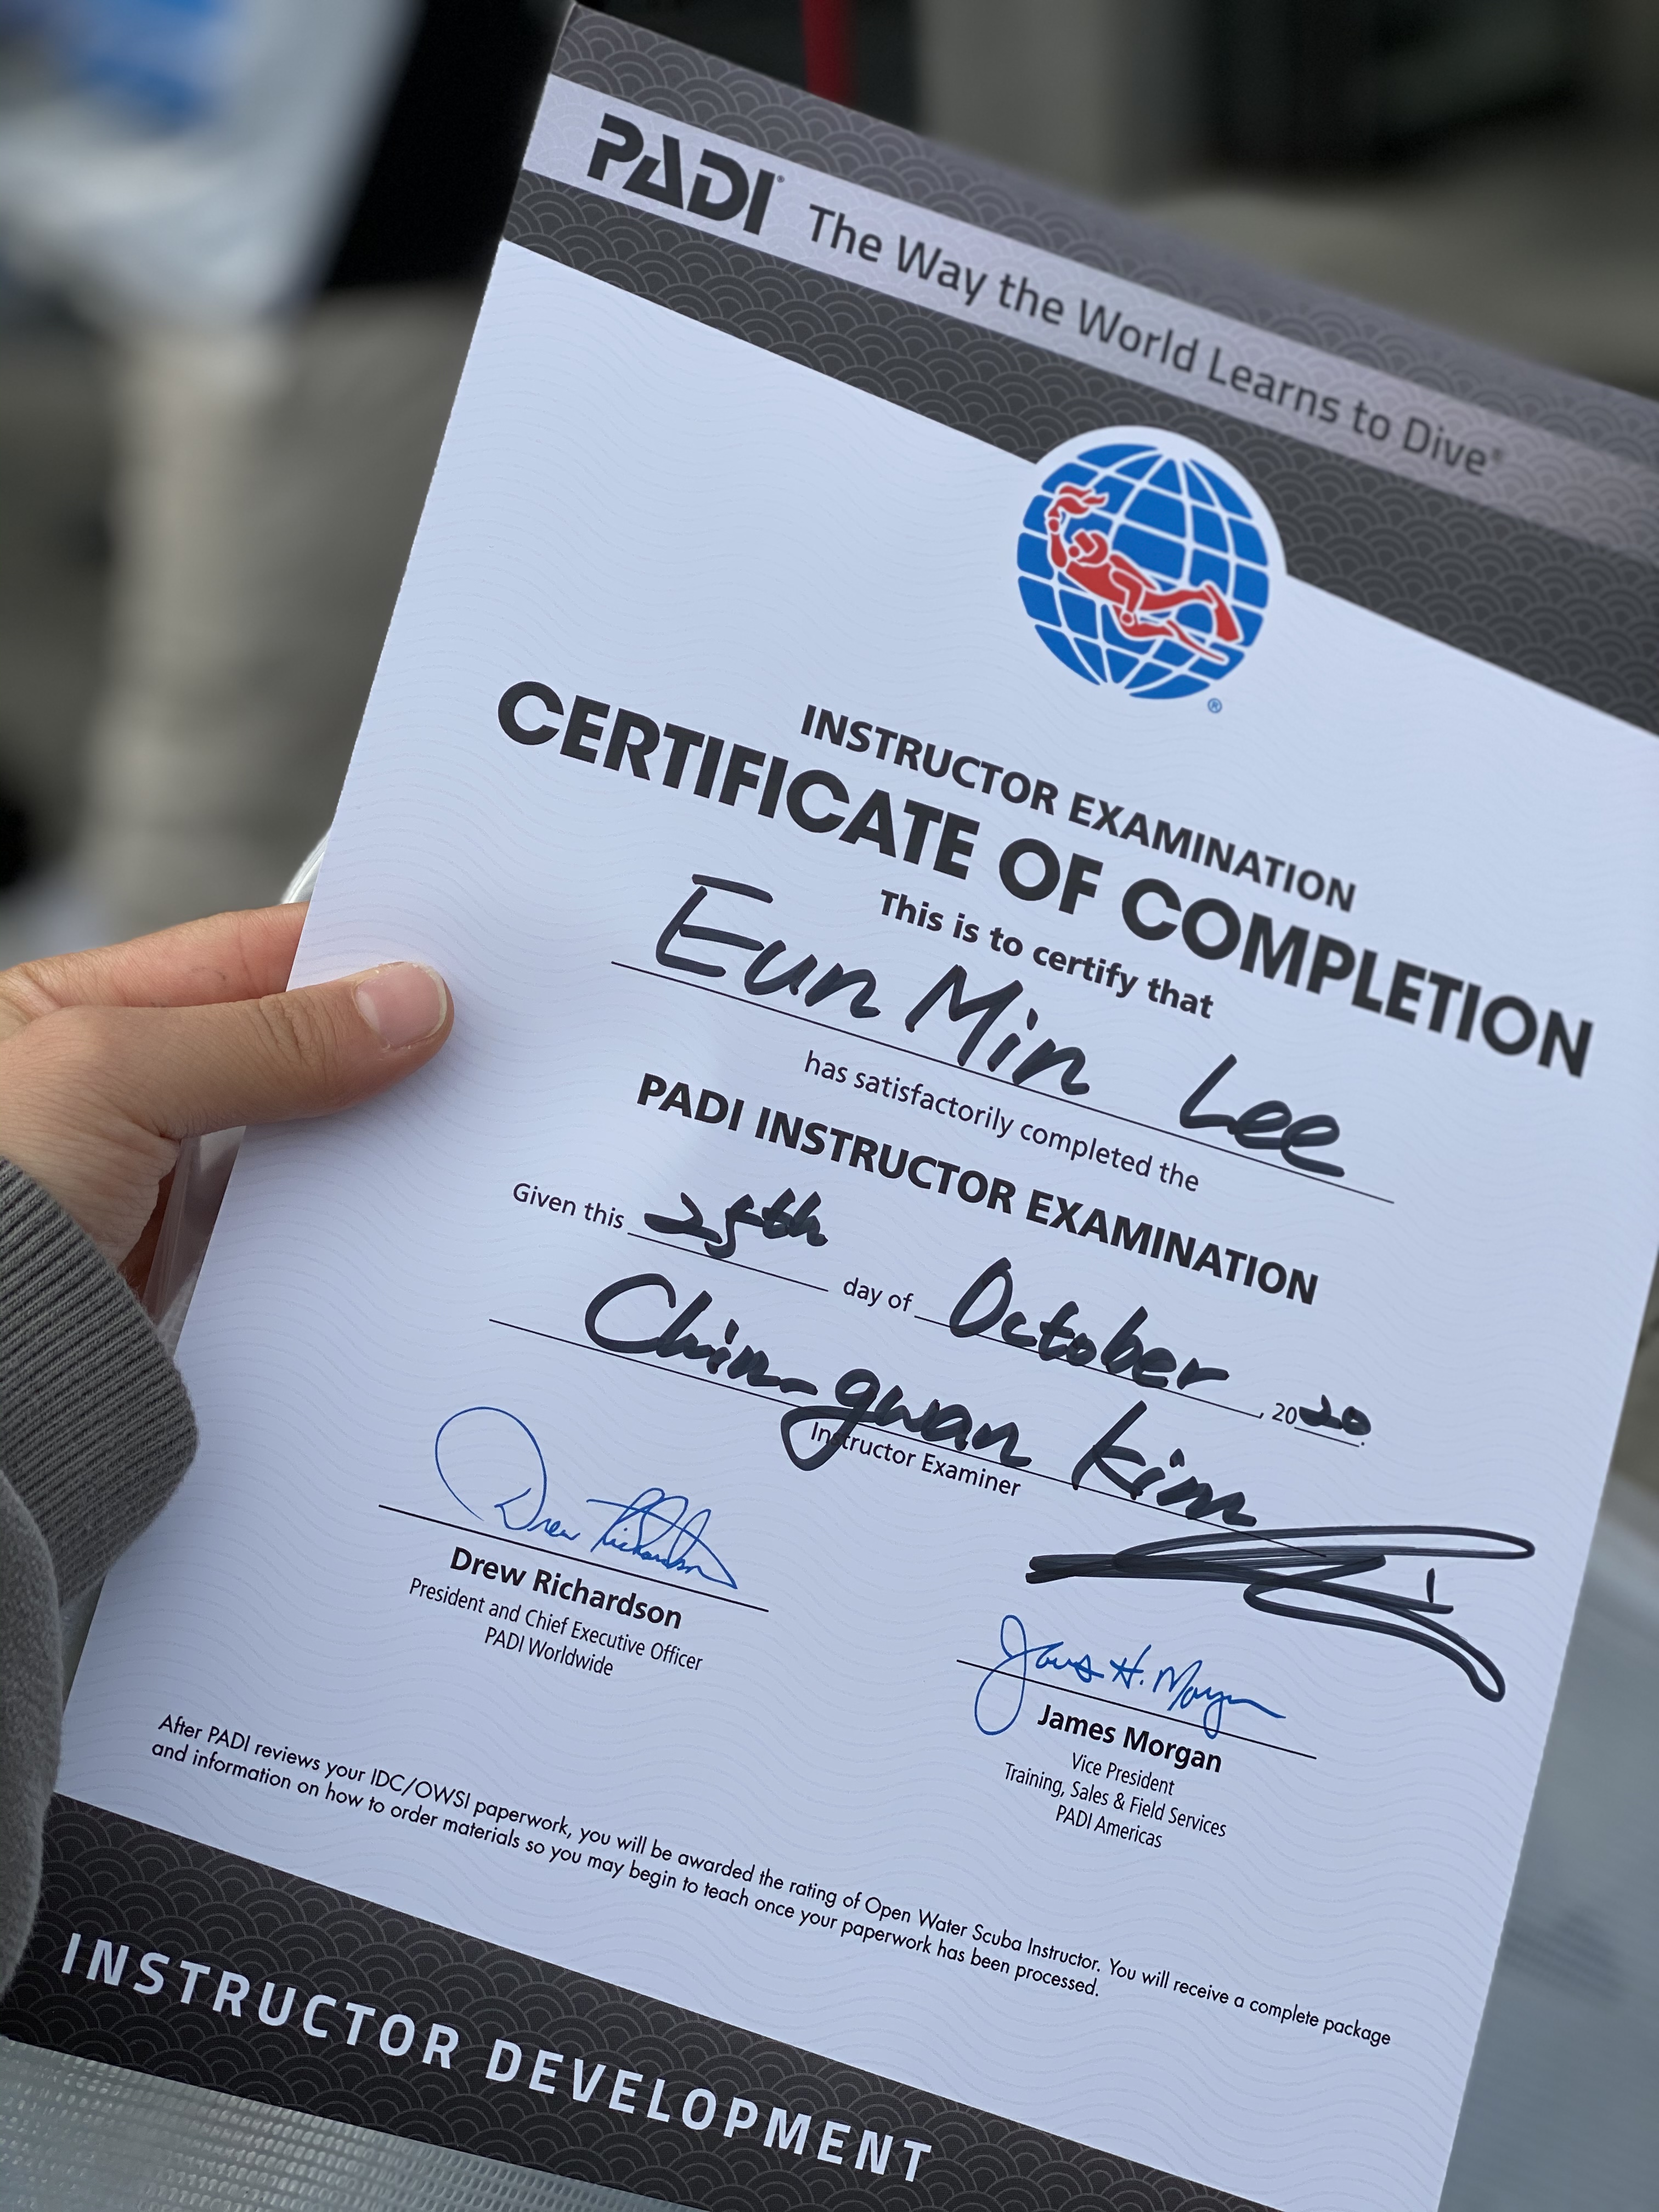 PADI® The Way the World Learns to Dive®
®
INSTRUCTOR EXAMINATION
CERTIFICATE OF COMPLETION
This is to certify that
Eun Min Lee
has satisfactorily completed the
PADI INSTRUCTOR EXAMINATION
Given this 25th day of October, 2020
Chin-gwan kim
Instructor Examiner
Drew Richardson
Drew Richardson
President and Chief Executive Officer
PADI Worldwide
James H. Morgan
James Morgan
Vice President
Training, Sales & Field Services
PADI Americas
After PADI reviews your IDC/OWSI paperwork, you will be awarded the rating of Open Water Scuba Instructor. You will receive a complete package
and information on how to order materials so you may begin to teach once your paperwork has been processed.
INSTRUCTOR DEVELOPMENT